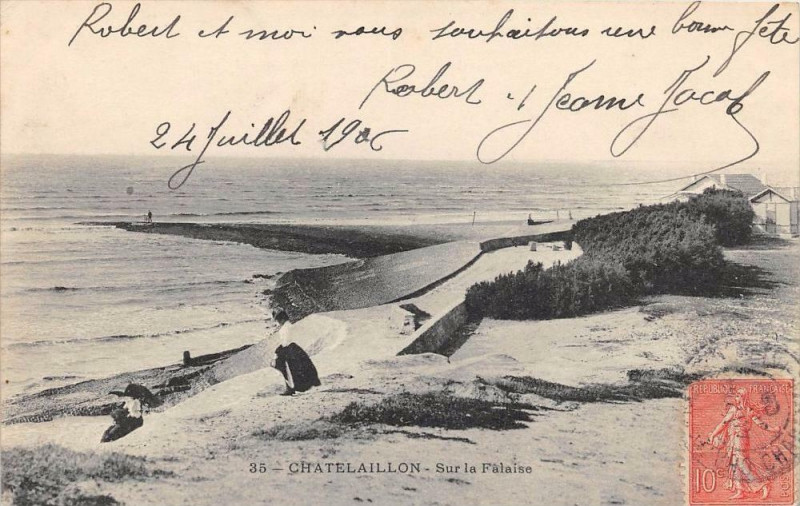 Robert et moi vous souhaitons une bonne fête
Robert et Jeanne Jacob
24 Juillet 1906
35 - CHATELAILLON - Sur la Fàlaise
REPUBLIQUE FRANÇAISE
10
POSTES